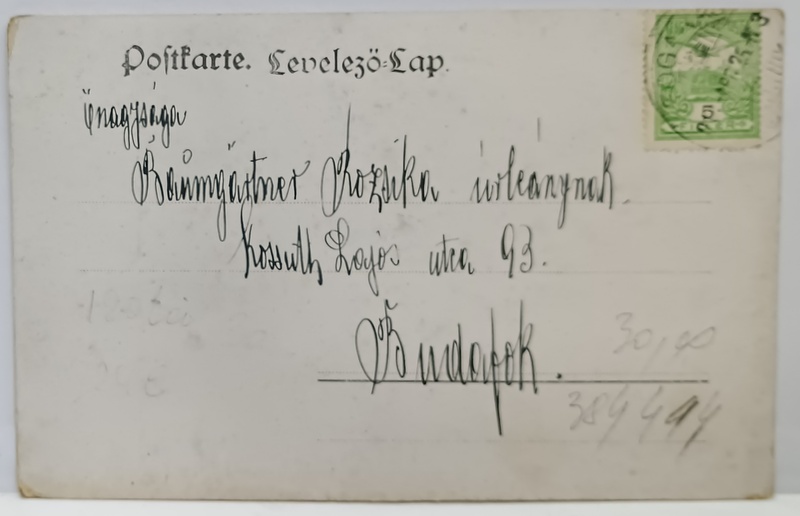 Postkarte. Levelező-Lap.
Őnagysága
Baumgärtner Rozsika úrleánynak.
Kossuth Lajos utca 93.
Budafok.
5
30,00